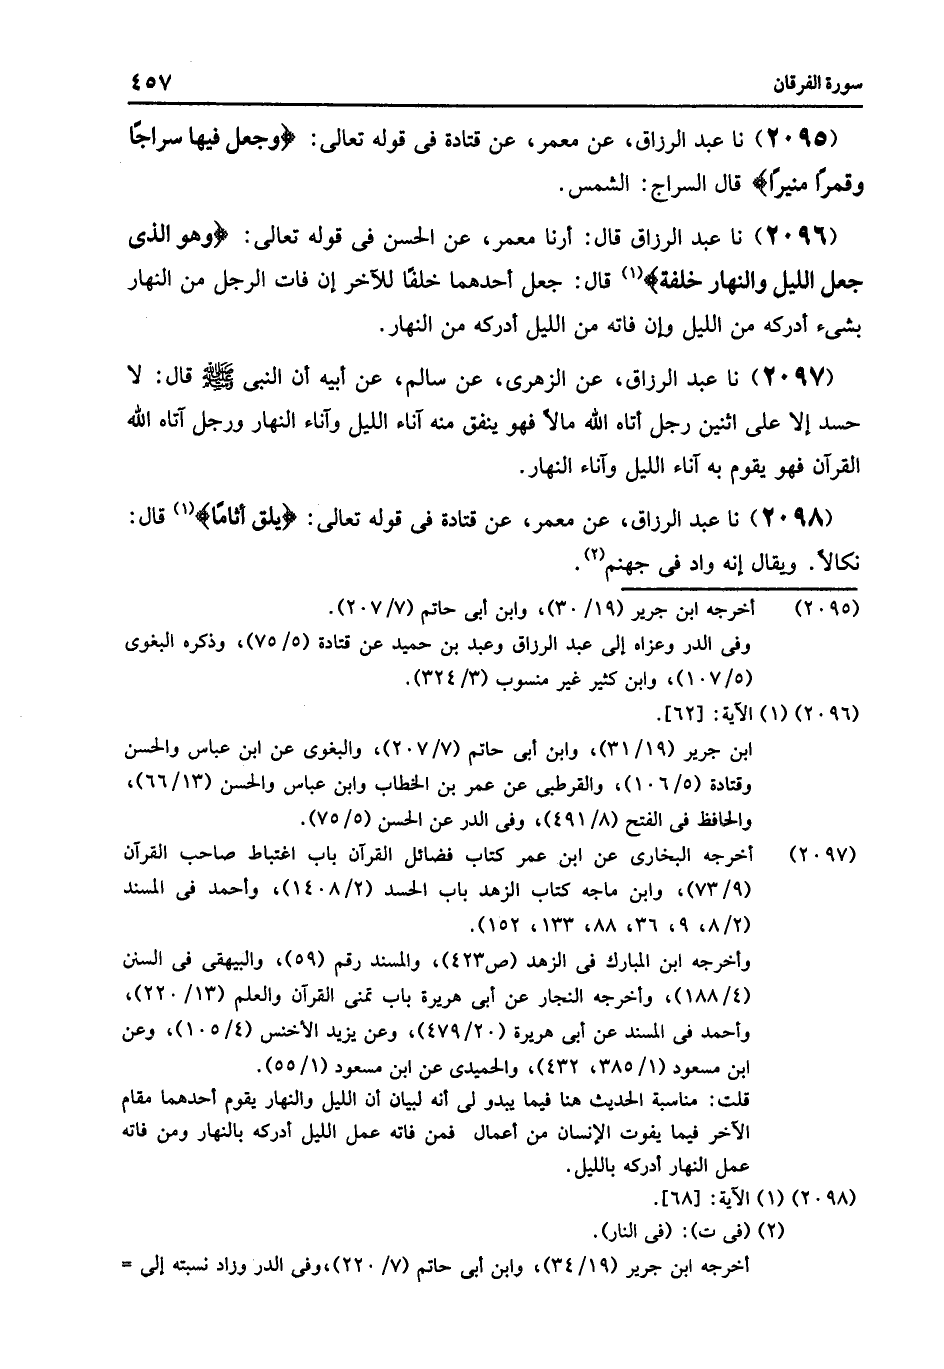 سورة الفرقان ٤٥٧
(٢٠٩٥) نا عبد الرزاق، عن معمر، عن قتادة فى قوله تعالى: ﴿وجعل فيها سراجًا
وقمرًا منيرًا﴾ قال السراج: الشمس.
(٢٠٩٦) نا عبد الرزاق قال: أرنا معمر، عن الحسن فى قوله تعالى: ﴿وهو الذى
جعل الليل والنهار خلفة﴾(١) قال: جعل أحدهما خلفًا للآخر إن فات الرجل من النهار
بشىء أدركه من الليل وإن فاته من الليل أدركه من النهار.
(٢٠٩٧) نا عبد الرزاق، عن الزهرى، عن سالم، عن أبيه أن النبى ﷺ قال: لا
حسد إلا على اثنين رجل أتاه الله مالاً فهو ينفق منه آناء الليل وآناء النهار ورجل آتاه الله
القرآن فهو يقوم به آناء الليل وآناء النهار.
(٢٠٩٨) نا عبد الرزاق، عن معمر، عن قتادة فى قوله تعالى: ﴿يلق أثامًا﴾(١) قال:
نكالاً. ويقال إنه واد فى جهنم(٢).
(٢٠٩٥) أخرجه ابن جرير (١٩/ ٣٠)، وابن أبى حاتم (٧/ ٢٠٧).
وفى الدر وعزاه إلى عبد الرزاق وعبد بن حميد عن قتادة (٥/ ٧٥)، وذكره البغوى
(٥/ ١٠٧)، وابن كثير غير منسوب (٣/ ٣٢٤).
(٢٠٩٦) (١) الآية: [٦٢].
ابن جرير (١٩/ ٣١)، وابن أبى حاتم (٧/ ٢٠٧)، والبغوى عن ابن عباس والحسن
وقتادة (٥/ ١٠٦)، والقرطبى عن عمر بن الخطاب وابن عباس والحسن (١٣/ ٦٦)،
والحافظ فى الفتح (٨/ ٤٩١)، وفى الدر عن الحسن (٥/ ٧٥).
(٢٠٩٧) أخرجه البخارى عن ابن عمر كتاب فضائل القرآن باب اغتباط صاحب القرآن
(٩/ ٧٣)، وابن ماجه كتاب الزهد باب الحسد (٢/ ١٤٠٨)، وأحمد فى المسند
(٢/ ٨، ٩، ٣٦، ٨٨، ١٣٣، ١٥٢).
وأخرجه ابن المبارك فى الزهد (ص٤٢٣)، والمسند رقم (٥٩)، والبيهقى فى السنن
(٤/ ١٨٨)، وأخرجه النجار عن أبى هريرة باب تمنى القرآن والعلم (١٣/ ٢٢٠)،
وأحمد فى المسند عن أبى هريرة (٢٠/ ٤٧٩)، وعن يزيد الأخنس (٤/ ١٠٥)، وعن
ابن مسعود (١/ ٣٨٥، ٤٣٢)، والحميدى عن ابن مسعود (١/ ٥٥).
قلت: مناسبة الحديث هنا فيما يبدو لى أنه لبيان أن الليل والنهار يقوم أحدهما مقام
الآخر فيما يفوت الإنسان من أعمال فمن فاته عمل الليل أدركه بالنهار ومن فاته
عمل النهار أدركه بالليل.
(٢٠٩٨) (١) الآية: [٦٨].
(٢) (فى ت): (فى النار).
أخرجه ابن جرير (١٩/ ٣٤)، وابن أبى حاتم (٧/ ٢٢٠)،وفى الدر وزاد نسبته إلى =